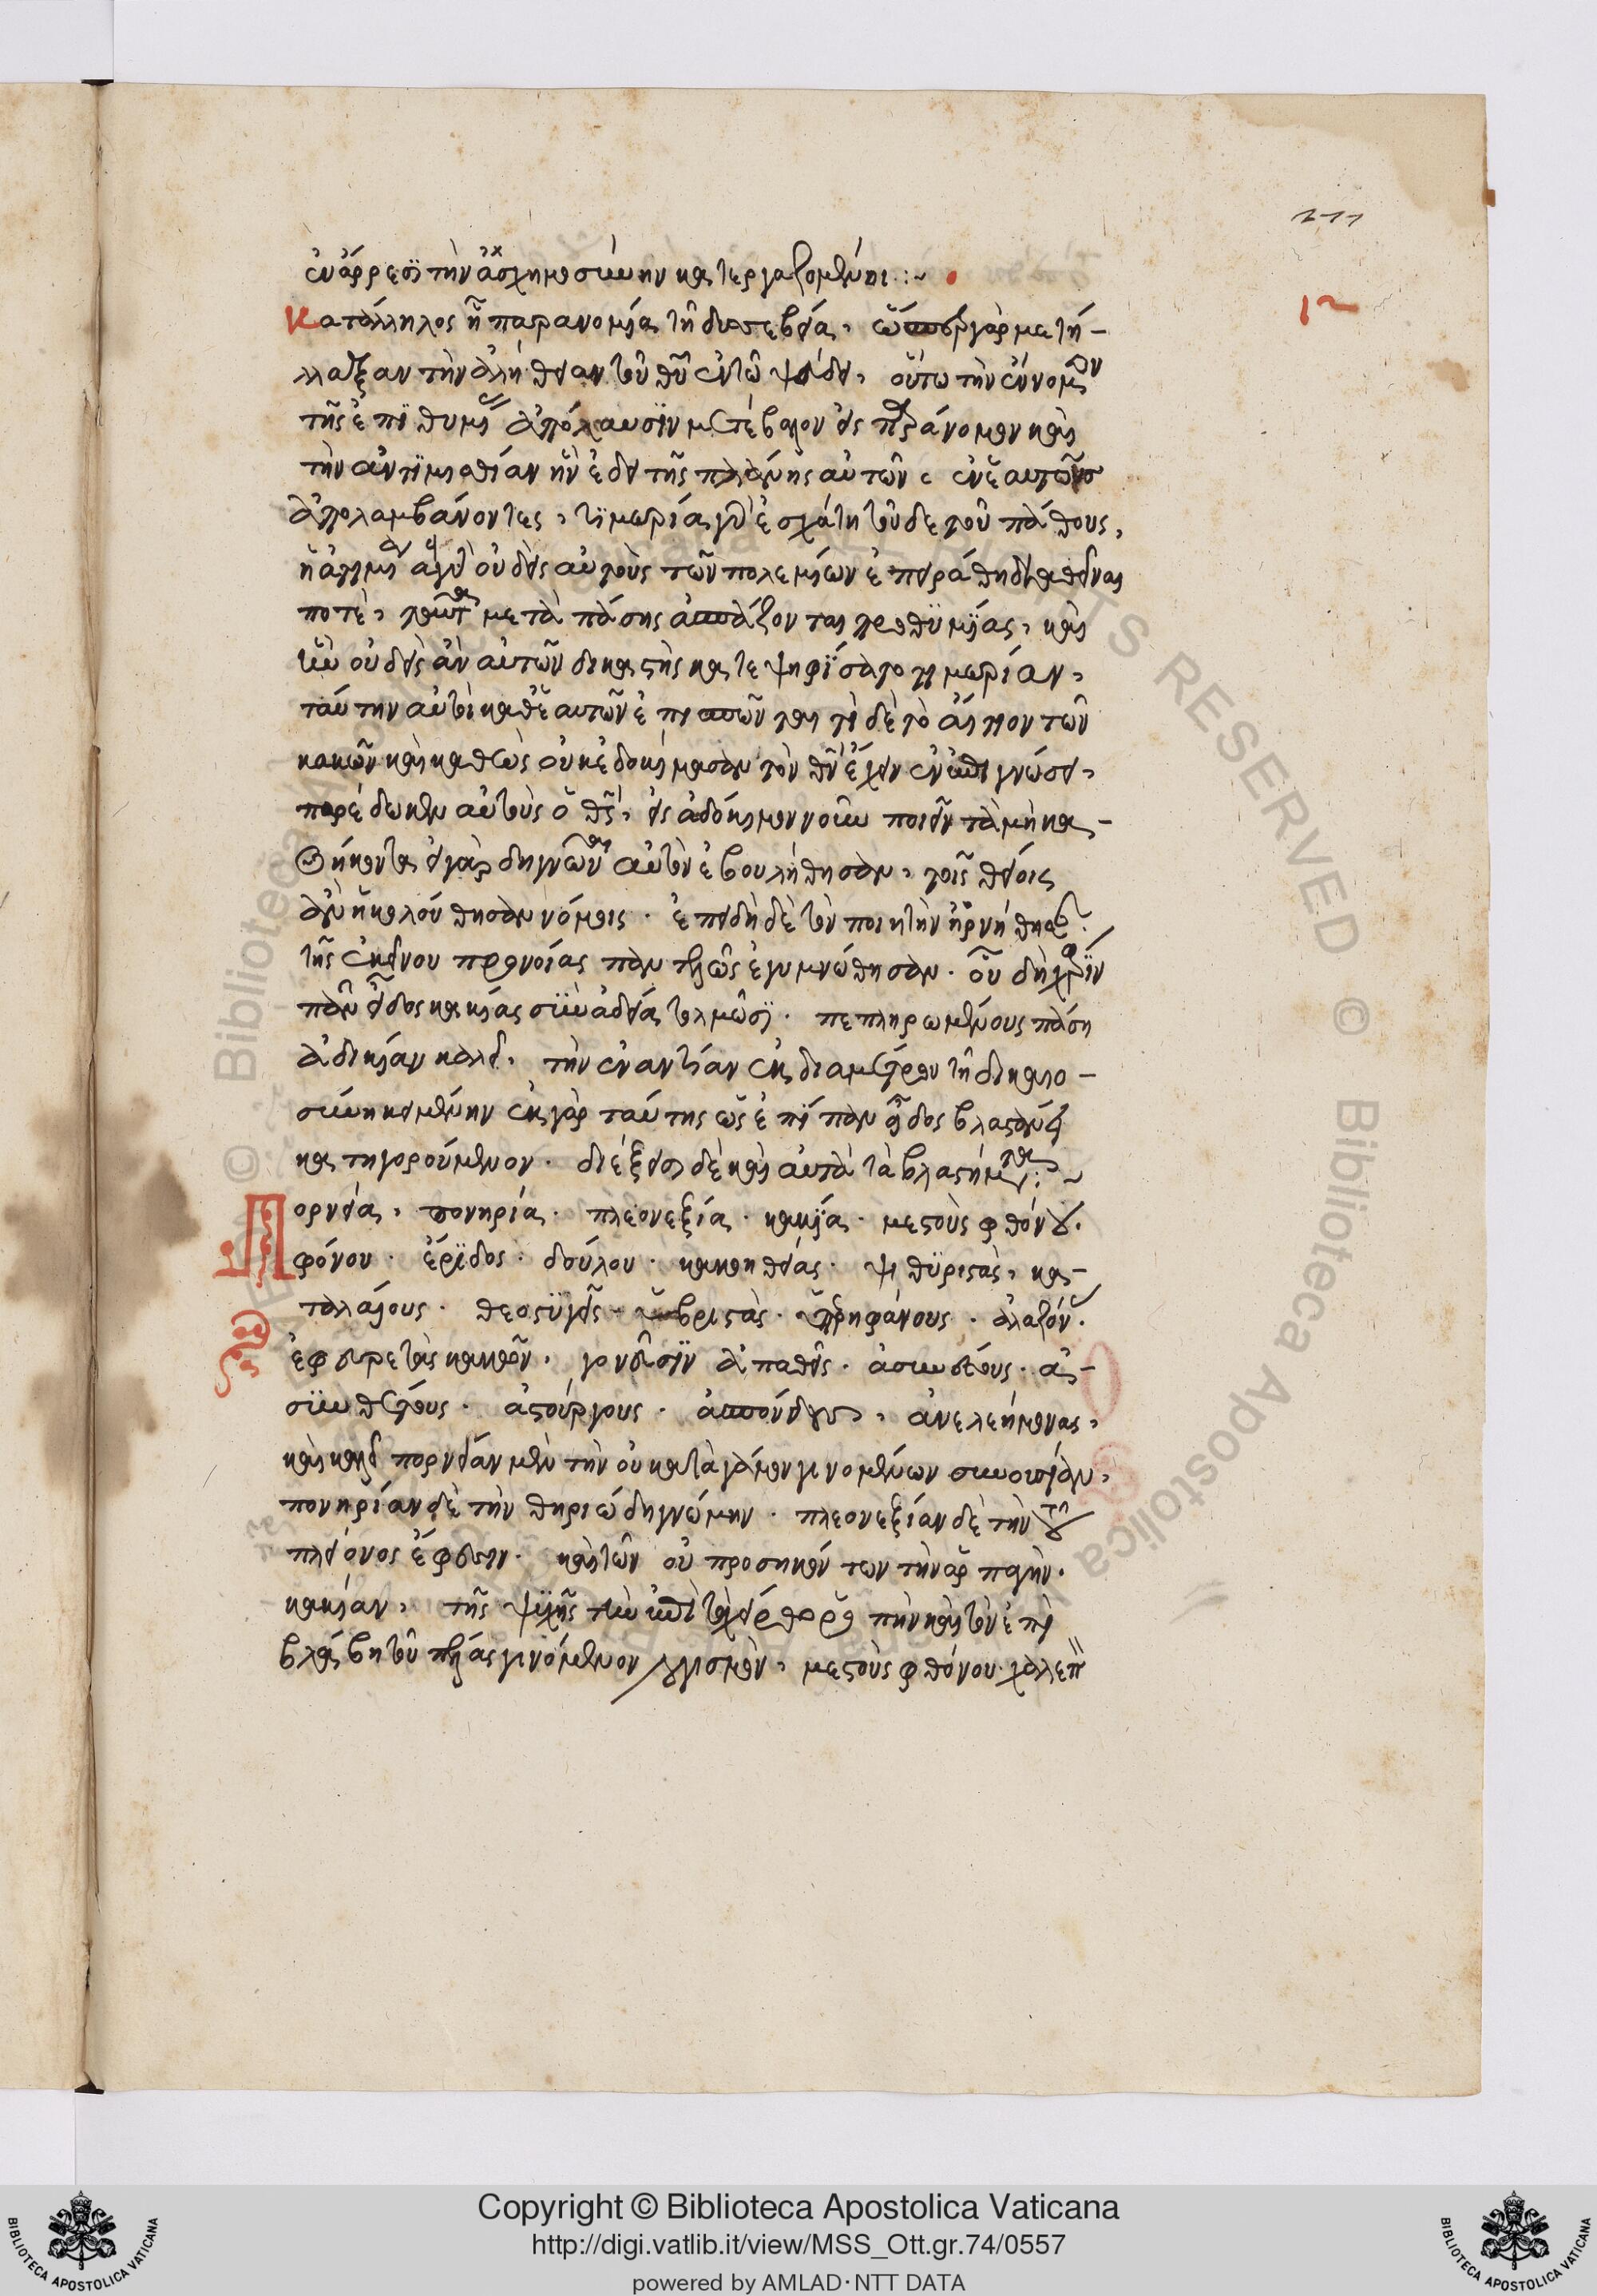 277
ἐν ἄρρεσϊ τὴν ἀσχημοσύνην κατεργαζομένοι :~
12
Κατάλληλος ἡ παρανομία τῆ δυσεβεία, ὥσπερ γὰρ μετή-
λλαξαν τὴν ἀλήθειαν τοῦ θυ ἐν τῶ ψεύδει, οὕτω τὴν ἔννομον
τῆς ἐπϊθυμίας ἀπόλαυσϊν μετέβαλον εἰς παράνομον καὶ
τὴν ἀντϊμισθίαν ἣν ἔδει τῆς πλάνης αὐτῶν ἐν ἑαυτοῖς
ἀπολαμβάνοντες, τϊμωρία γὰρ ἐσχάτη τοῦδε τοῦ πάθους,
ἡ ἀτιμία ἃ γὰρ οὐδεὶς αὐτοὺς τῶν πολεμίων ἐπειράθη διαθεῖναι
ποτὲ, ταῦτα μετὰ πάσης ἀσπάζονται προθϋμίας, καὶ
ἣν οὐδεὶς ἂν αὐτῶν δικαστὴς κατεψηφίσατο τιμωρίαν,
ταύτην αὐτοὶ καθ' ἑαυτῶν ἐπισπῶνται τί δὲ τὸ αἴτιον τῶν
κακῶν καὶ καθὼς οὐκ ἐδοκίμασαν τὸν θν ἔχειν ἐν ἐπιγνώσει,
παρέδωκεν αὐτοὺς ὁ θς, εἰς ἀδόκιμον νοῦν ποιεῖν τὰ μὴ κα-
θήκοντα εἰ γὰρ δὴ γνῶναι αὐτὸν ἐβουλήθησαν, τοῖς θείοις
ἂν ἠκολούθησαν νόμοις · ἐπειδὴ δὲ τὸν ποιητὴν ἠρνήθησαν
τῆς ἐκείνου προνοίας παντελῶς ἐγυμνώθησαν · οὗ δὴ χάριν
πᾶν εἶδος κακίας σϋν ἀδεία τολμῶσϊ · πεπληρωμένους πάση
ἀδικίαν καλεῖ, τὴν ἐναντίαν ἐκ διαμέτρου τῆ δικαιο-
σύνη κειμένην ἐκ γὰρ ταύτης ὡς ἐπϊπαν εἶδος βλαστάνει
κατηγορούμενον · διέξεισι δὲ καὶ αὐτὰ τὰ βλαστήματα :~
Πορνεία, πονηρία · πλεονεξία · κακϊα · μεστοὺς φθόνου ·
φόνου · ἔρϊδος · δούλου · κακοηθείας · ψιθϋριστὰς, κα-
ταλάλους · θεοστϋγεῖς · ὑβριστὰς · ὑπερηφάνους · ἀλαζόνας ·
ἐφευρετὰς κακῶν, γονεῦσϊν ἀπαθεῖς · ἀσυνέτους · ἀ-
σϋνθέτους · ἀστόργους · ἀσπόνδους, ἀνελεήμονας,
καὶ καλεῖ πορνείαν μὲν τὴν οὐ κατὰ γάμον γινομένων συνουσίαν,
πονηρίαν δὲ τὴν θηριώδη γνώμην · πλεονεξίαν δὲ τὴν τοῦ
πλείονος ἔφεσιν · καὶ τῶν οὐ προσηκόντων τὴν ἁρπαγὴν ·
κακίαν, τῆς ψϋχῆς τὴν ἐπὶ τὰ χείρω ῥοπὴν καὶ τὸν ἐπὶ
βλάβη τοῦ πέλας γινόμενον λογισμὸν, μεστοὺς φθόνου · χαλεπὸν
Copyright © Biblioteca Apostolica Vaticana
http://digi.vatlib.it/view/MSS_Ott.gr.74/0557
powered by AMLAD·NTT DATA